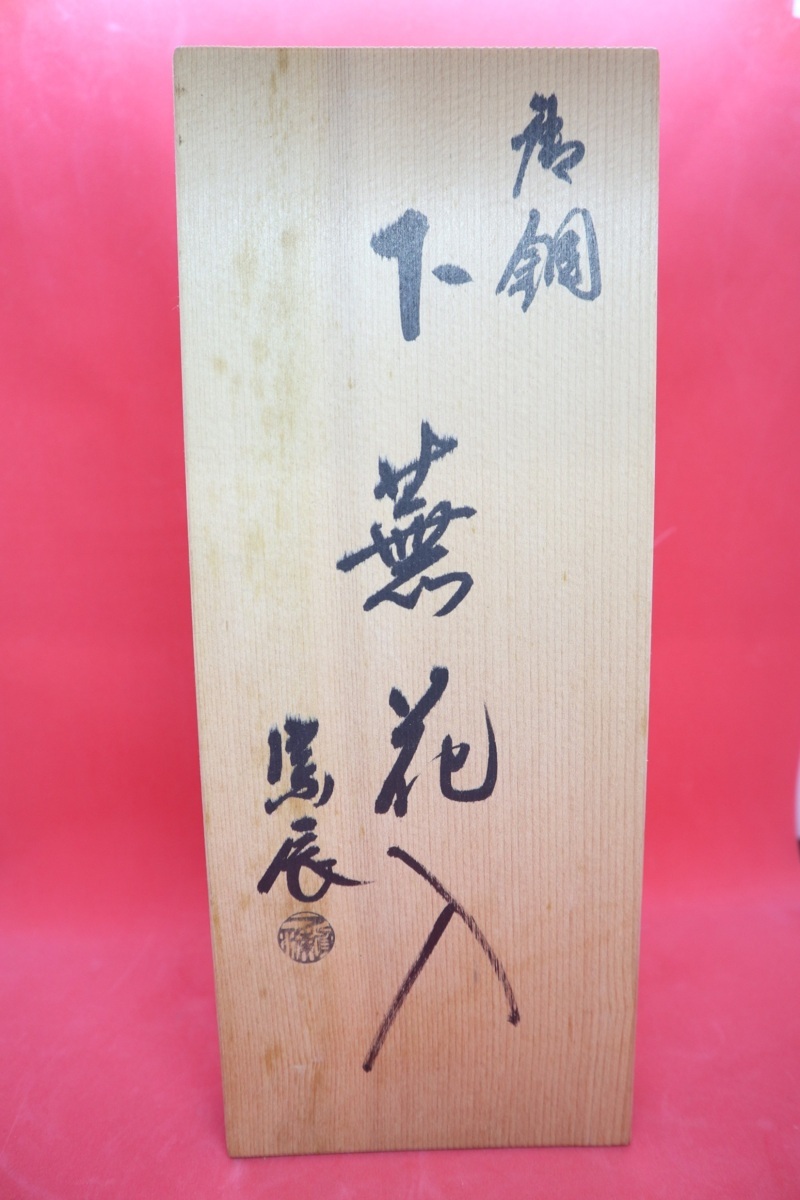 唐銅
下蕪花入
辰